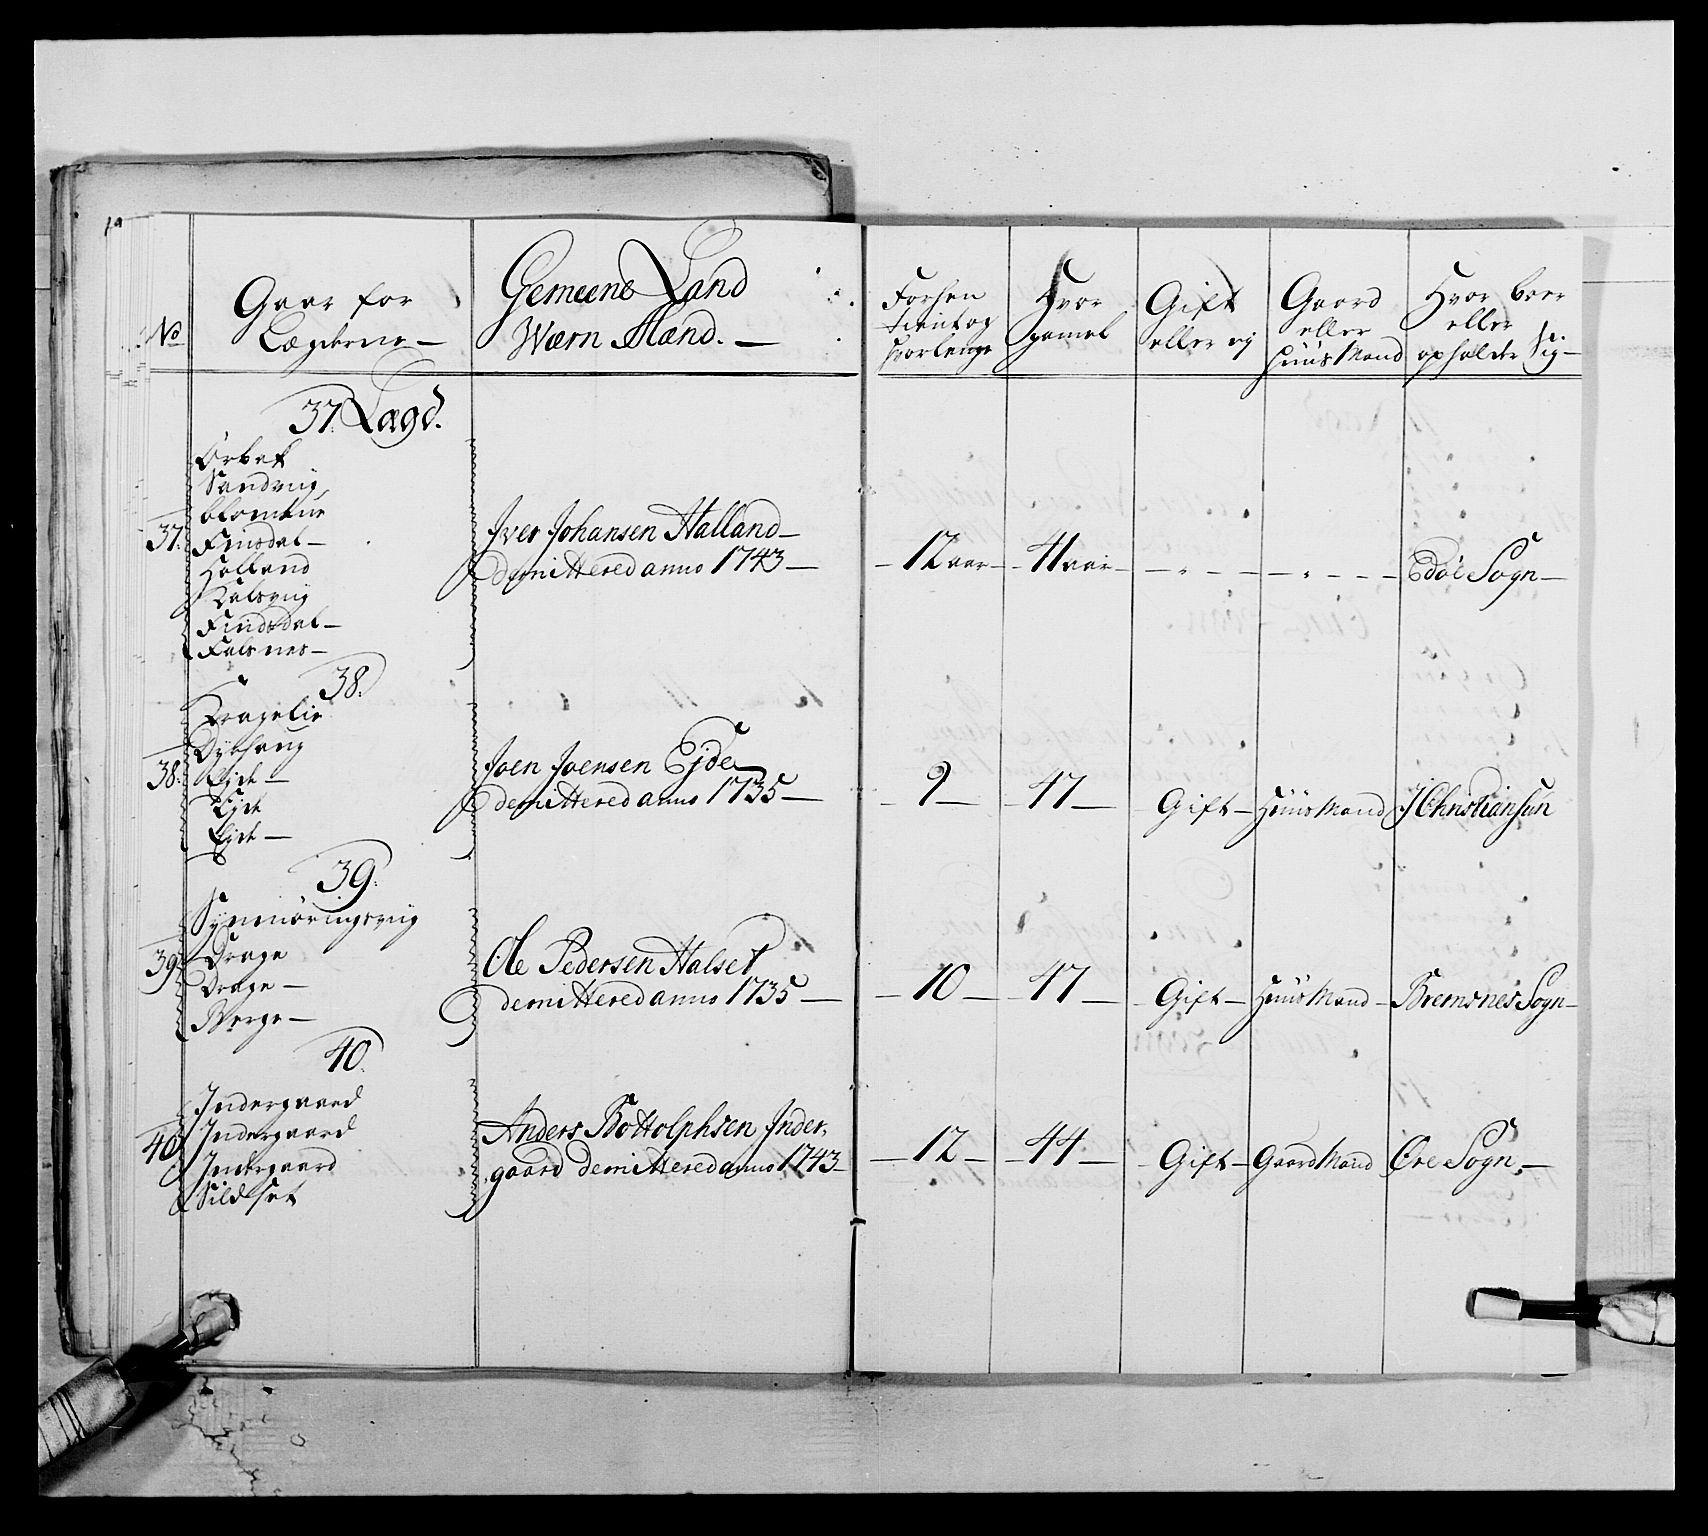 No
Gaar for
Lægderne —
Gemeene Land
Wærn Mænd. —
Forhen
tient og
hvorlenge
Hvor
gamel
Gift
eller ej
Gaard
eller
Huus Mand
Hvor boer
eller
opholder Sig —
37. Lægd.
Orbek
Sandviig
37.
Findsdal —
Halland
Dalsviig
Findsdal —
Falsnes —
Iver Johansen Halland —
demittered anno 1743 —
— 12 aar — 41 aar — Edøe Sogn —
38.
Dragelie
38.
Ejde —
Ejde
Ejde —
Joen Joensen Ejde
demittered anno 1735 —
— 9 — 47 — Gift — Huus Mand I Christiansun
39.
Synmøringsviig
39.
Drage
Drage —
Berge —
Ole Pedersen Halset
demittered anno 1735 —
— 10 — 47 — Gift — Huus Mand — Bremsnes Sogn —
40.
Indergaard
40.
Indergaard
Indergaard
Sildset
Anders Bottolphsen Inder,
gaard demittered anno 1743 —
— 12 — 44 — Gift — Gaard Mand Øre Sogn. —